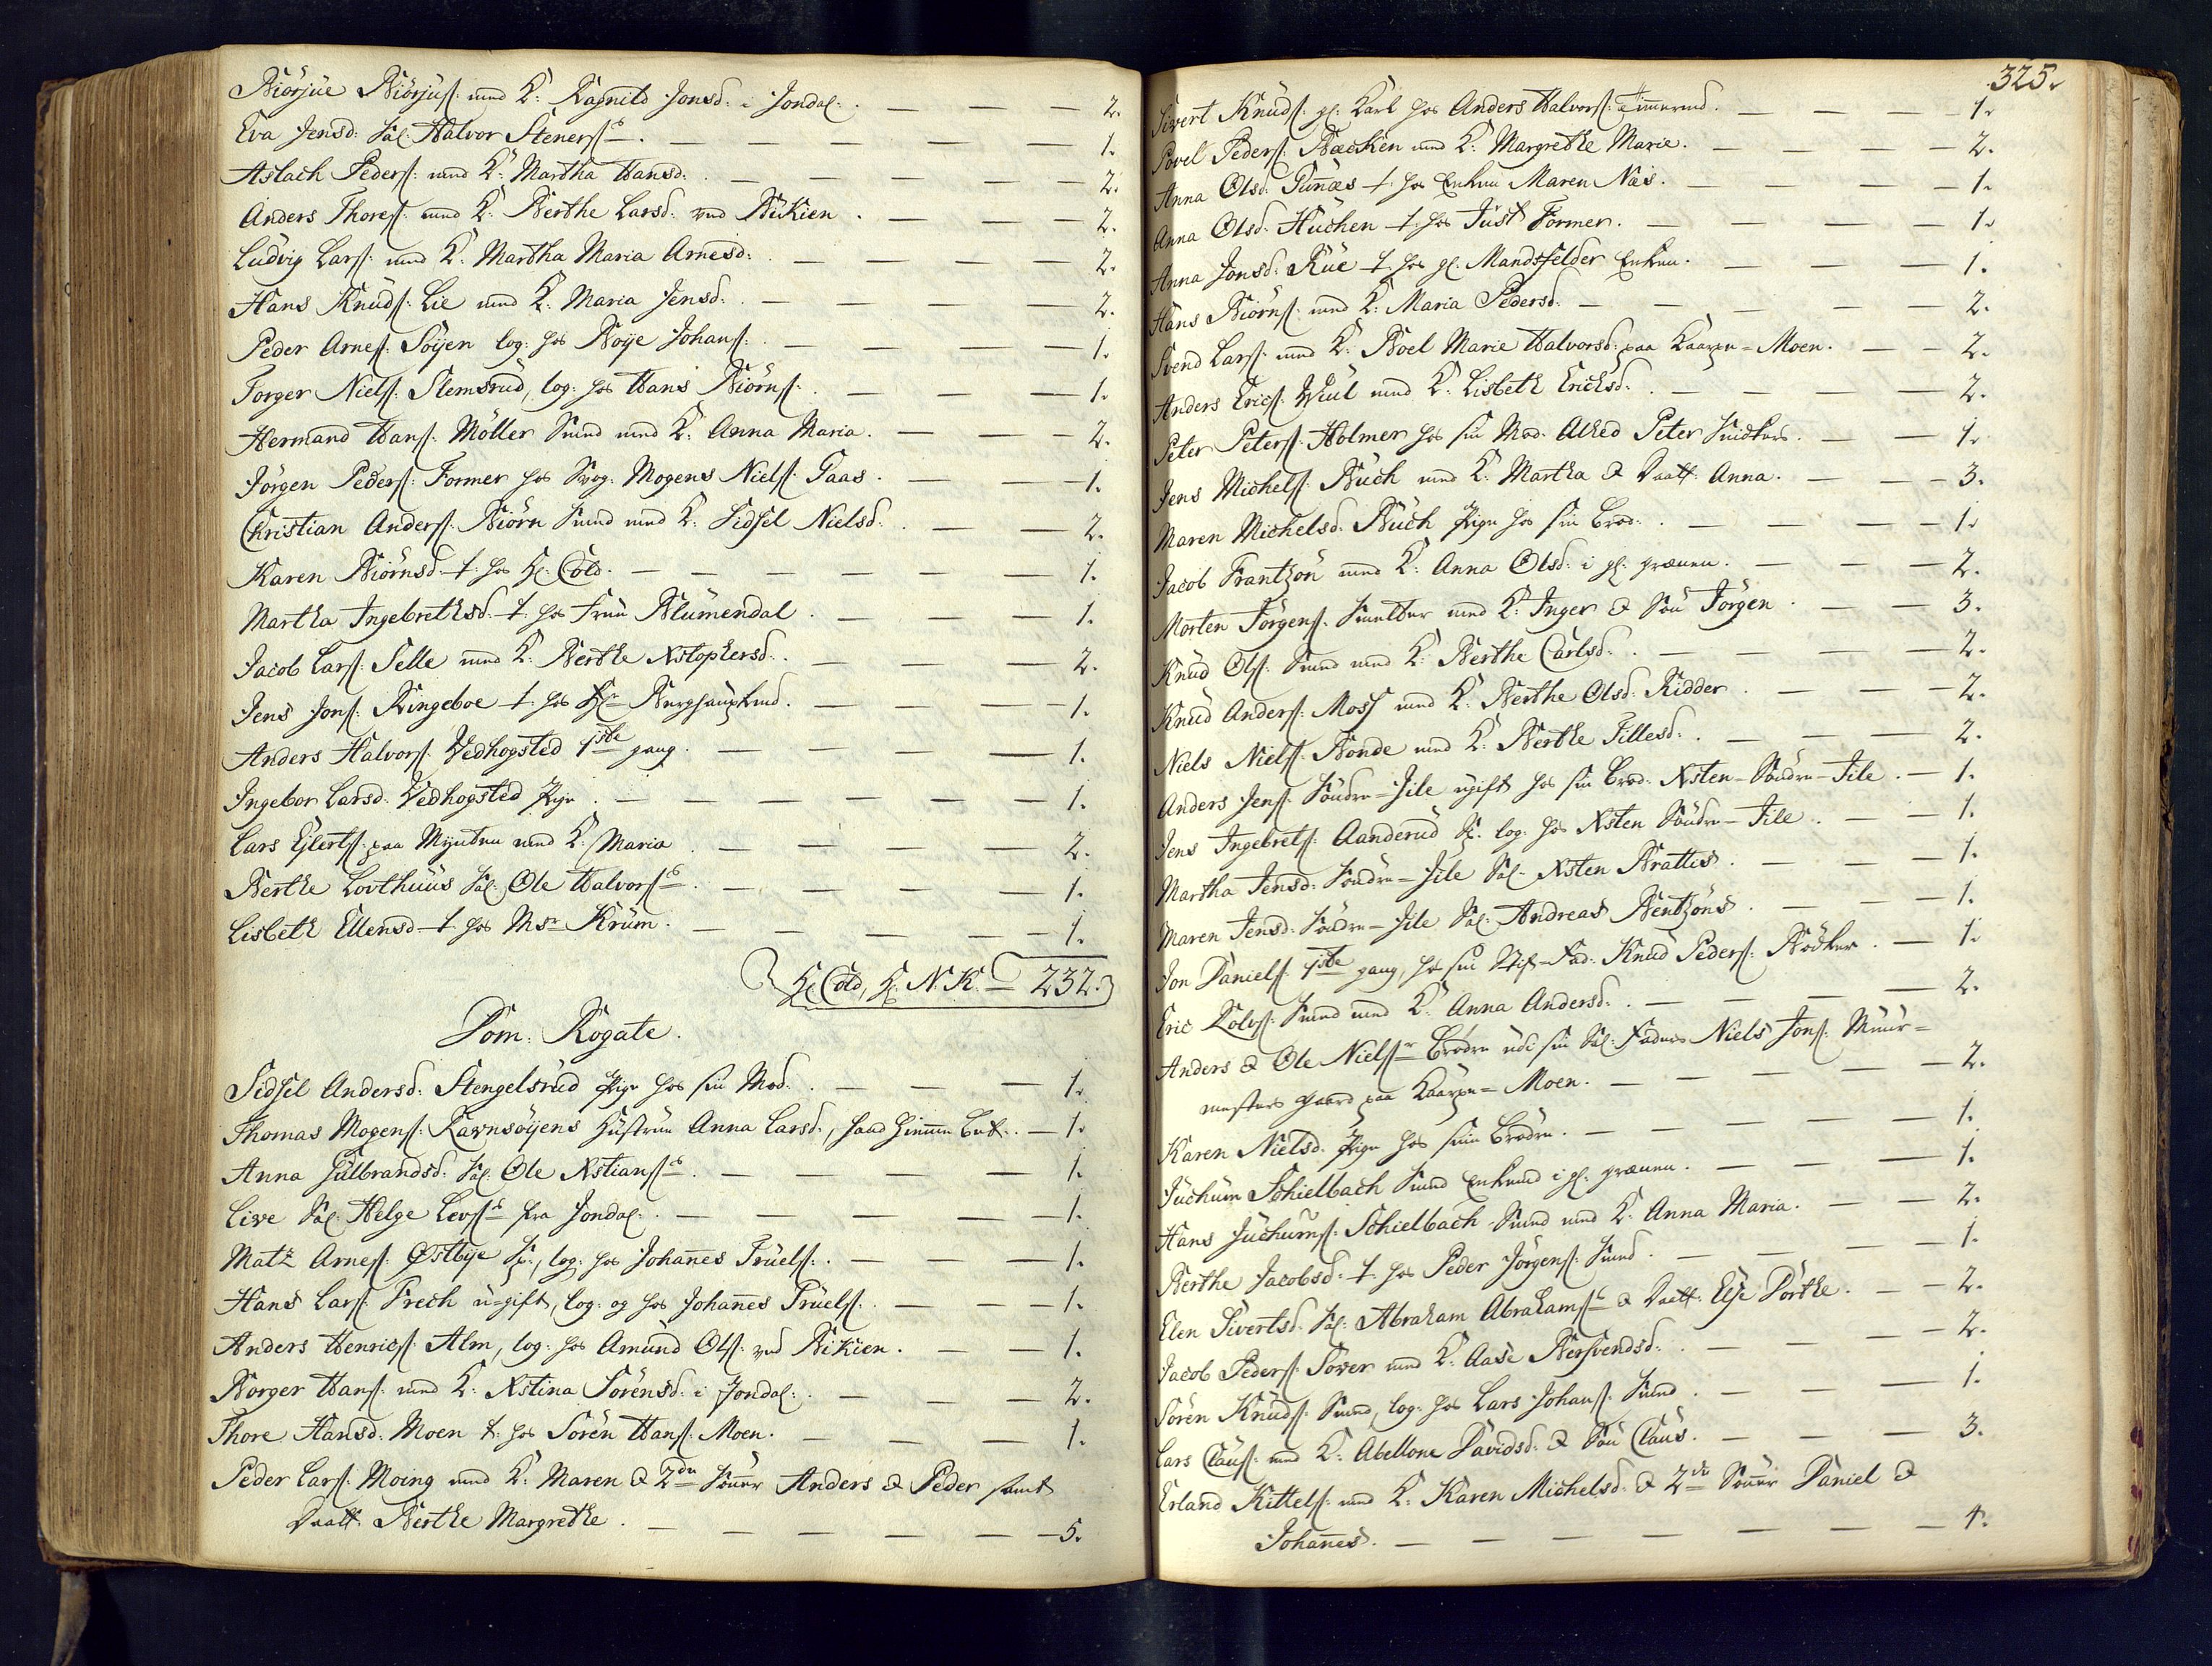 Biörjüe Biörjüs: med K: Ragnild Jonsd: i Jondal. — 2.
Eva Jensd: Sal: Halvor Stenersˢ. — 1.
Aslach Peders: med K: Martha Hansd: — 2.
Anders Thores: med K: Berthe Larsd: ved Bükien. — 2.
Ludvig Lars: med K: Martha Maria Arnesd: — 2.
Hans Knuds: Lie med K: Maria Jensd: — 2.
Peder Arnes: Söyen log: hos Boye Johans: — 1.
Torger Niels: Slemsrud, log: hos Hans Biörns: — 1.
Hermand Hans: Möller Smed med K: Anna Maria. — 2.
Jörgen Peders: Former hos Svog: Mogens Niels: Taas. — 1.
Christian Anders: Biörn Smed med K: Sidsel Nielsd: — 2.
Karen Biörnsd: t: hos Hr: Cold. — 1.
Martha Ingebrethsd: t: hos Frue Blumendal. — 1.
Jacob Lars: Selle med K: Berthe Xstophersd: — 2.
Jens Jons: Ringeboe t: hos Hr: Berghauptmd. — 1.
Anders Halvors: Vedhogsted 1ste gang. — 1.
Ingebor Larsd: Vedhogsted Pige. — 1.
Lars Ejlerts: paa Myntten med K: Maria — 2.
Berthe Lovthuus Sal: Ole Halvorsˢ. — 1.
Lisbeth Ellensd: t: hos Msr Krüm. — 1.
Hr Cold, Hr: N. K. — 232.
Dom: Rogate.
Sidsel Andersd: Stengelsrud Pige hos sin Mod: — 1.
Thomas Mogens: Ravnsöyens Hüstrue Anna Larsd:, haad hiemme Bet: — 1.
Anna Gulbrandsd: Sal: Ole Xstiansˢ. — 1.
Live Sal: Helge Levsˢ fra Jondal: — 1.
Matz Arnes: Østbye S:, log: hos Johannes Truels: — 1.
Hans Lars: Prech u-gift, log: og hos Johannes Truels: — 1.
Anders Henrics: Alm, log: hos Amund Ols: ved Bikien. — 1.
Borger Hans: med K: Xstina Sörensd: i Jondal: — 2.
Thore Hansd: Moen t: hos Sören Hans: Moen. — 1.
Peder Lars: Moing med K: Maren & 2de Sönner Anders & Peder samt
Daatt: Berthe Margrethe. — 5.
325.
Sivert Knuds: gl: Karl hos Anders Halvors: Timmermd. — 1.
Povel Peders: Bæcken med K: Margrethe Marie. — 2.
Anna Olsd: Tünæs t: hos Enken Maren Næs. — 1.
Anna Olsd: Huchen t: hos Just Former. — 1.
Anna Jonsd: Rue t: hos gl: Mandsfelder Enken. — 1.
Hans Biörns: med K: Maria Pedersd: — 2.
Svend Lars: med K: Boel Marie Halvorsd: paa Kaarpe-Moen. — 2.
Anders Erics: Wiul med K: Lisbeth Ericksd: — 2.
Peter Peters: Holmer hos sin Mod: Alhed Peter Snidkers. — 1.
Jens Michels: Buch med K: Martha & Daatt: Anna. — 3.
Maren Michelsd: Buch Pige hos sin Brod: — 1.
Jacob Frantzön med K: Anna Olsd: i gl: grænen. — 2.
Morten Jörgens: Smelter med K: Inger & Sön Jörgen. — 3.
Knud Ols: Smed med K: Berthe Carlsd: — 2.
Knud Anders: Moss med K: Berthe Olsd: Ridder. — 2.
Niels Niels: Bonde med K: Berthe Tillesd: — 2.
Anders Jens: Söndre-Jile ugift hos sin Brod: Xsten-Söndre-Jile. — 1.
Jens Ingebrets: Aanderud S: log: hos Xsten Söndre-Jile. — 1.
Martha Jensd: Söndre-Jile Sal: Xsten Brattes. — 1.
Maren Jensd: Söndre-Jile Sal: Andreas Bentzöns. — 1.
Jon Daniels: 1ste gang, hos sin Stif-Fad: Knud Peders: Bödker. — 1.
Eric Rolvs: Smed med K: Anna Andersd: — 2.
Anders & Ole Nielsr Brödre udi sin Sal: Faders Niels Jons: Muur=
mesters gaard paa Kaarpe=Moen. — 2.
Karen Nielsd: Pige hos sine Brödre. — 1.
Jüchum Schielbach Smed Enkemd i gl: grænen. — 1.
Hans Jüchums: Schielbach Smed med K: Anna Maria. — 2.
Berthe Jacobsd: t: hos Peder Jörgens: Smed. — 1.
Elen Sivertsd: Sal: Abraham Abrahamsˢ & Daatt: Else Dorthe. — 2.
Jacob Peders: Sover med K: Aase Bersvendsd: — 2.
Sören Knuds: Smed, log: hos Lars Johans: Smed. — 1.
Lars Claus: med K: Abellone Davidsd: & Sön Claus. — 3.
Erland Kittels: med K: Karen Michelsd: & 2de Sönner Daniel &
Johannes. — 4.